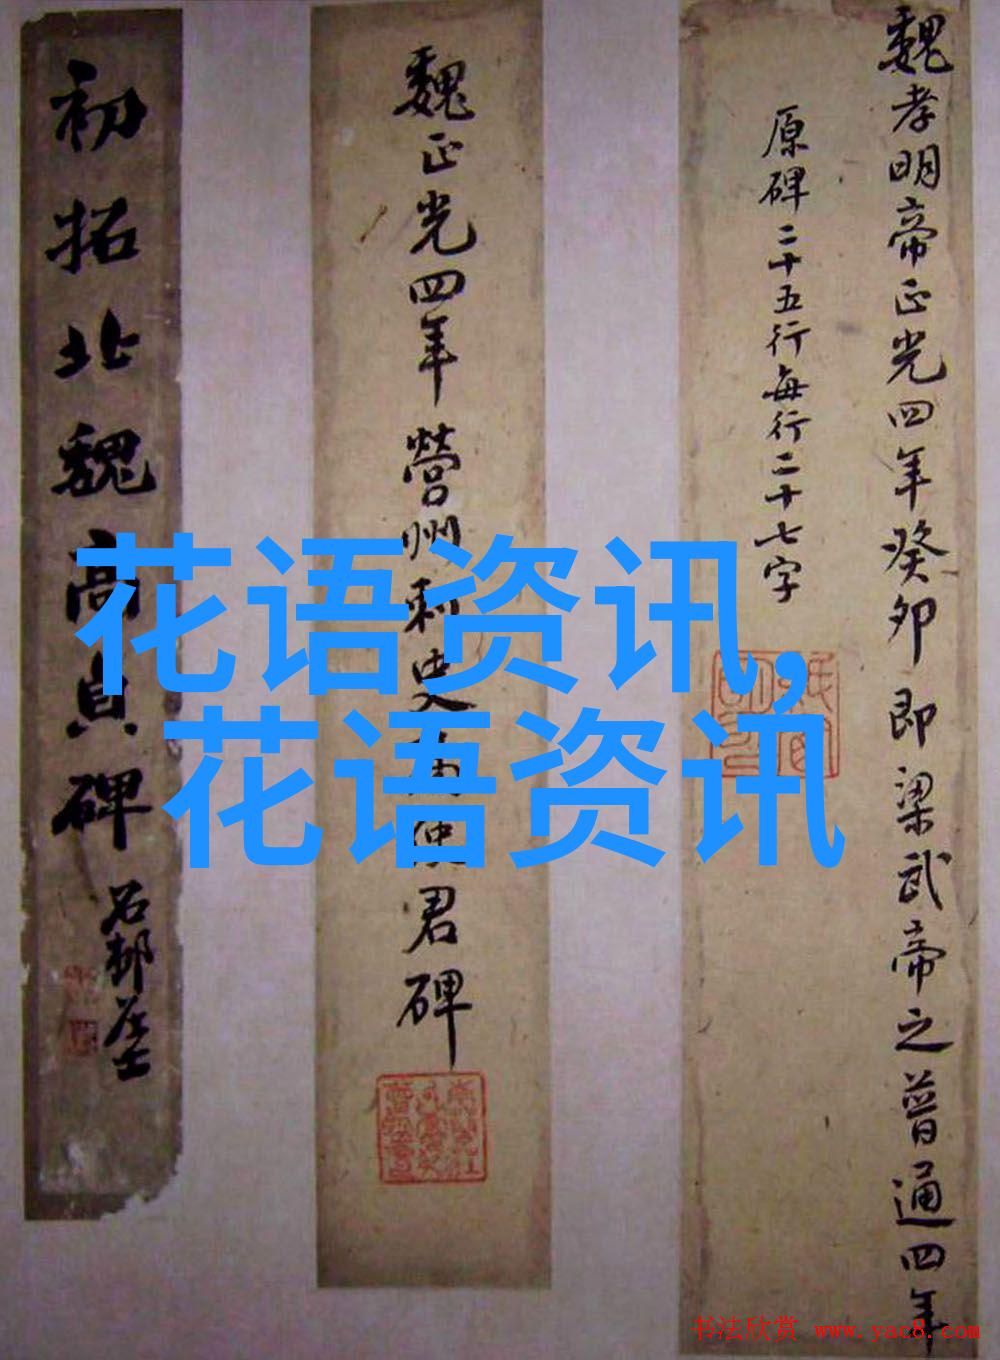 魏孝明帝正光四年癸卯即梁武帝之普通四年
原碑二十五行每行二十七字
魏正光四年營州刺史高使君碑
初拓北魏高貞碑
花语资讯,
花语资讯
书法欣赏 www.yac8.com